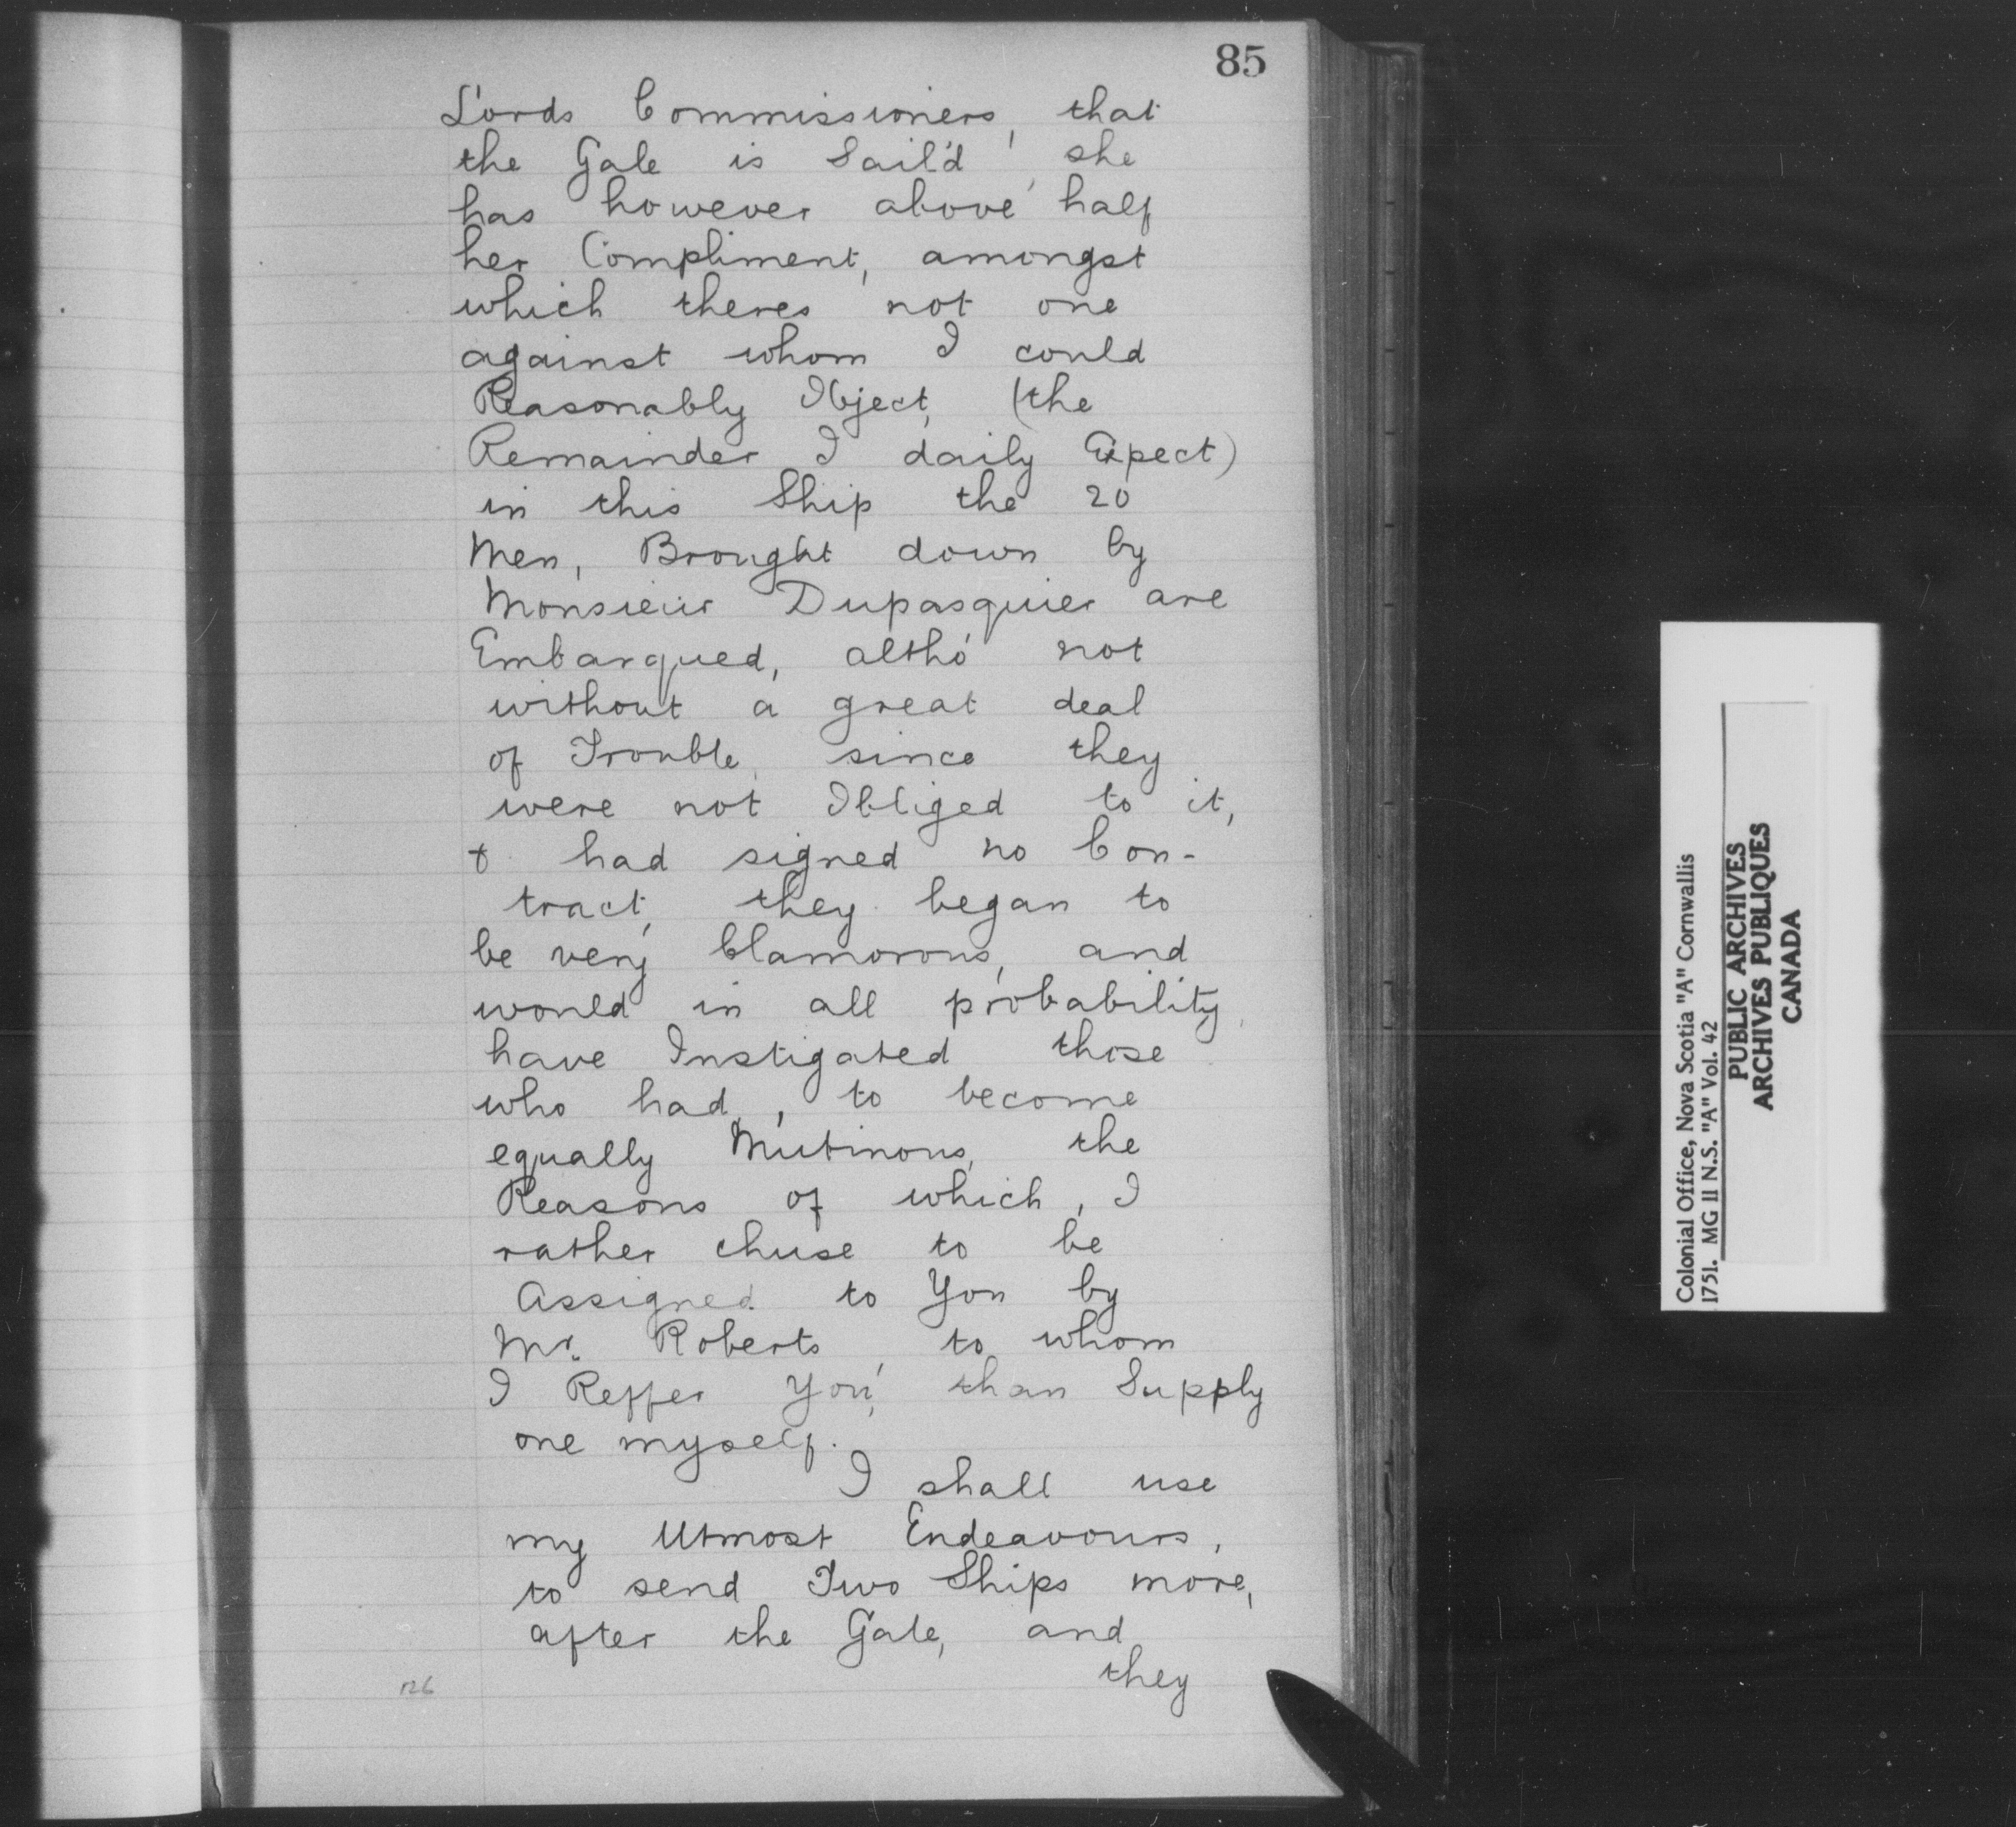 85
Lords Commissioners, that
the Gale is Sail'd, she
has however above half
her Compliment, amongst
which theres not one
against whom I could
Reasonably Object, (the
Remainder I daily Expect)
in this Ship the 20
Men, Brought down by
Monsieur Dupasquier are
Embarqued, altho' not
without a great deal
of Trouble, since they
were not Obliged to it,
& had signed no Con-
tract, they began to
be very Clamorous, and
would in all probability,
have Instigated those
who had, to become
equally Mutinous, the
Reasons of which, I
rather chuse to be
Assigned to You by
Mr. Roberts, to whom
I Reffer You, than Supply
one myself.
I shall use
my Utmost Endeavours,
to send Two Ships more,
after the Gale, and
they
126
Colonial Office, Nova Scotia "A" Cornwallis
1751. MG II N.S. "A" Vol. 42
PUBLIC ARCHIVES
ARCHIVES PUBLIQUES
CANADA